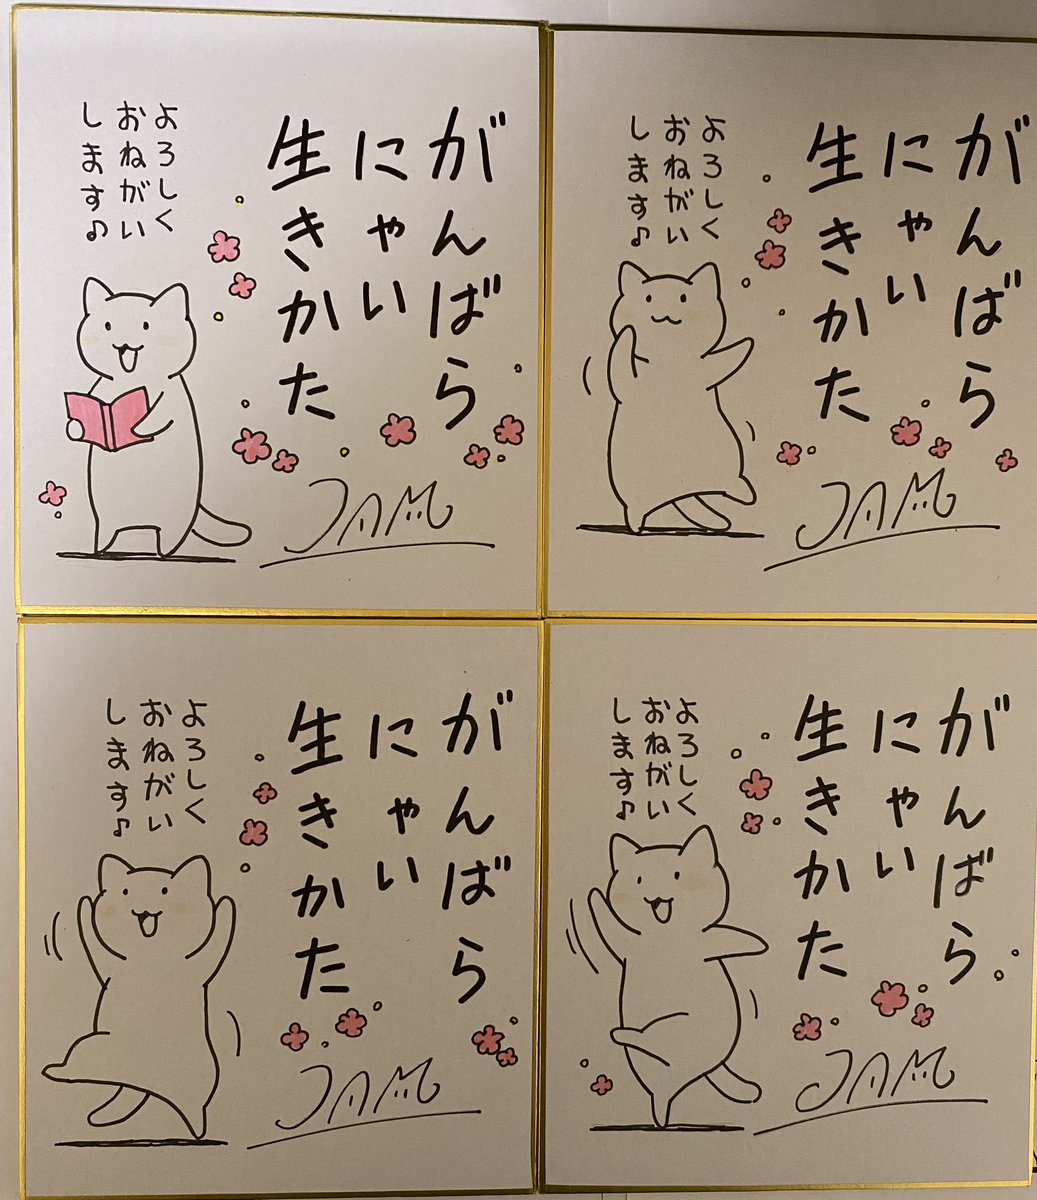 がんばら
にゃい
生きかた
よろしく
おねがい
します♪
JAM
がんばら
にゃい
生きかた
よろしく
おねがい
します♪
JAM
がんばら
にゃい
生きかた
よろしく
おねがい
します♪
JAM
がんばら
にゃい
生きかた
よろしく
おねがい
します♪
JAM